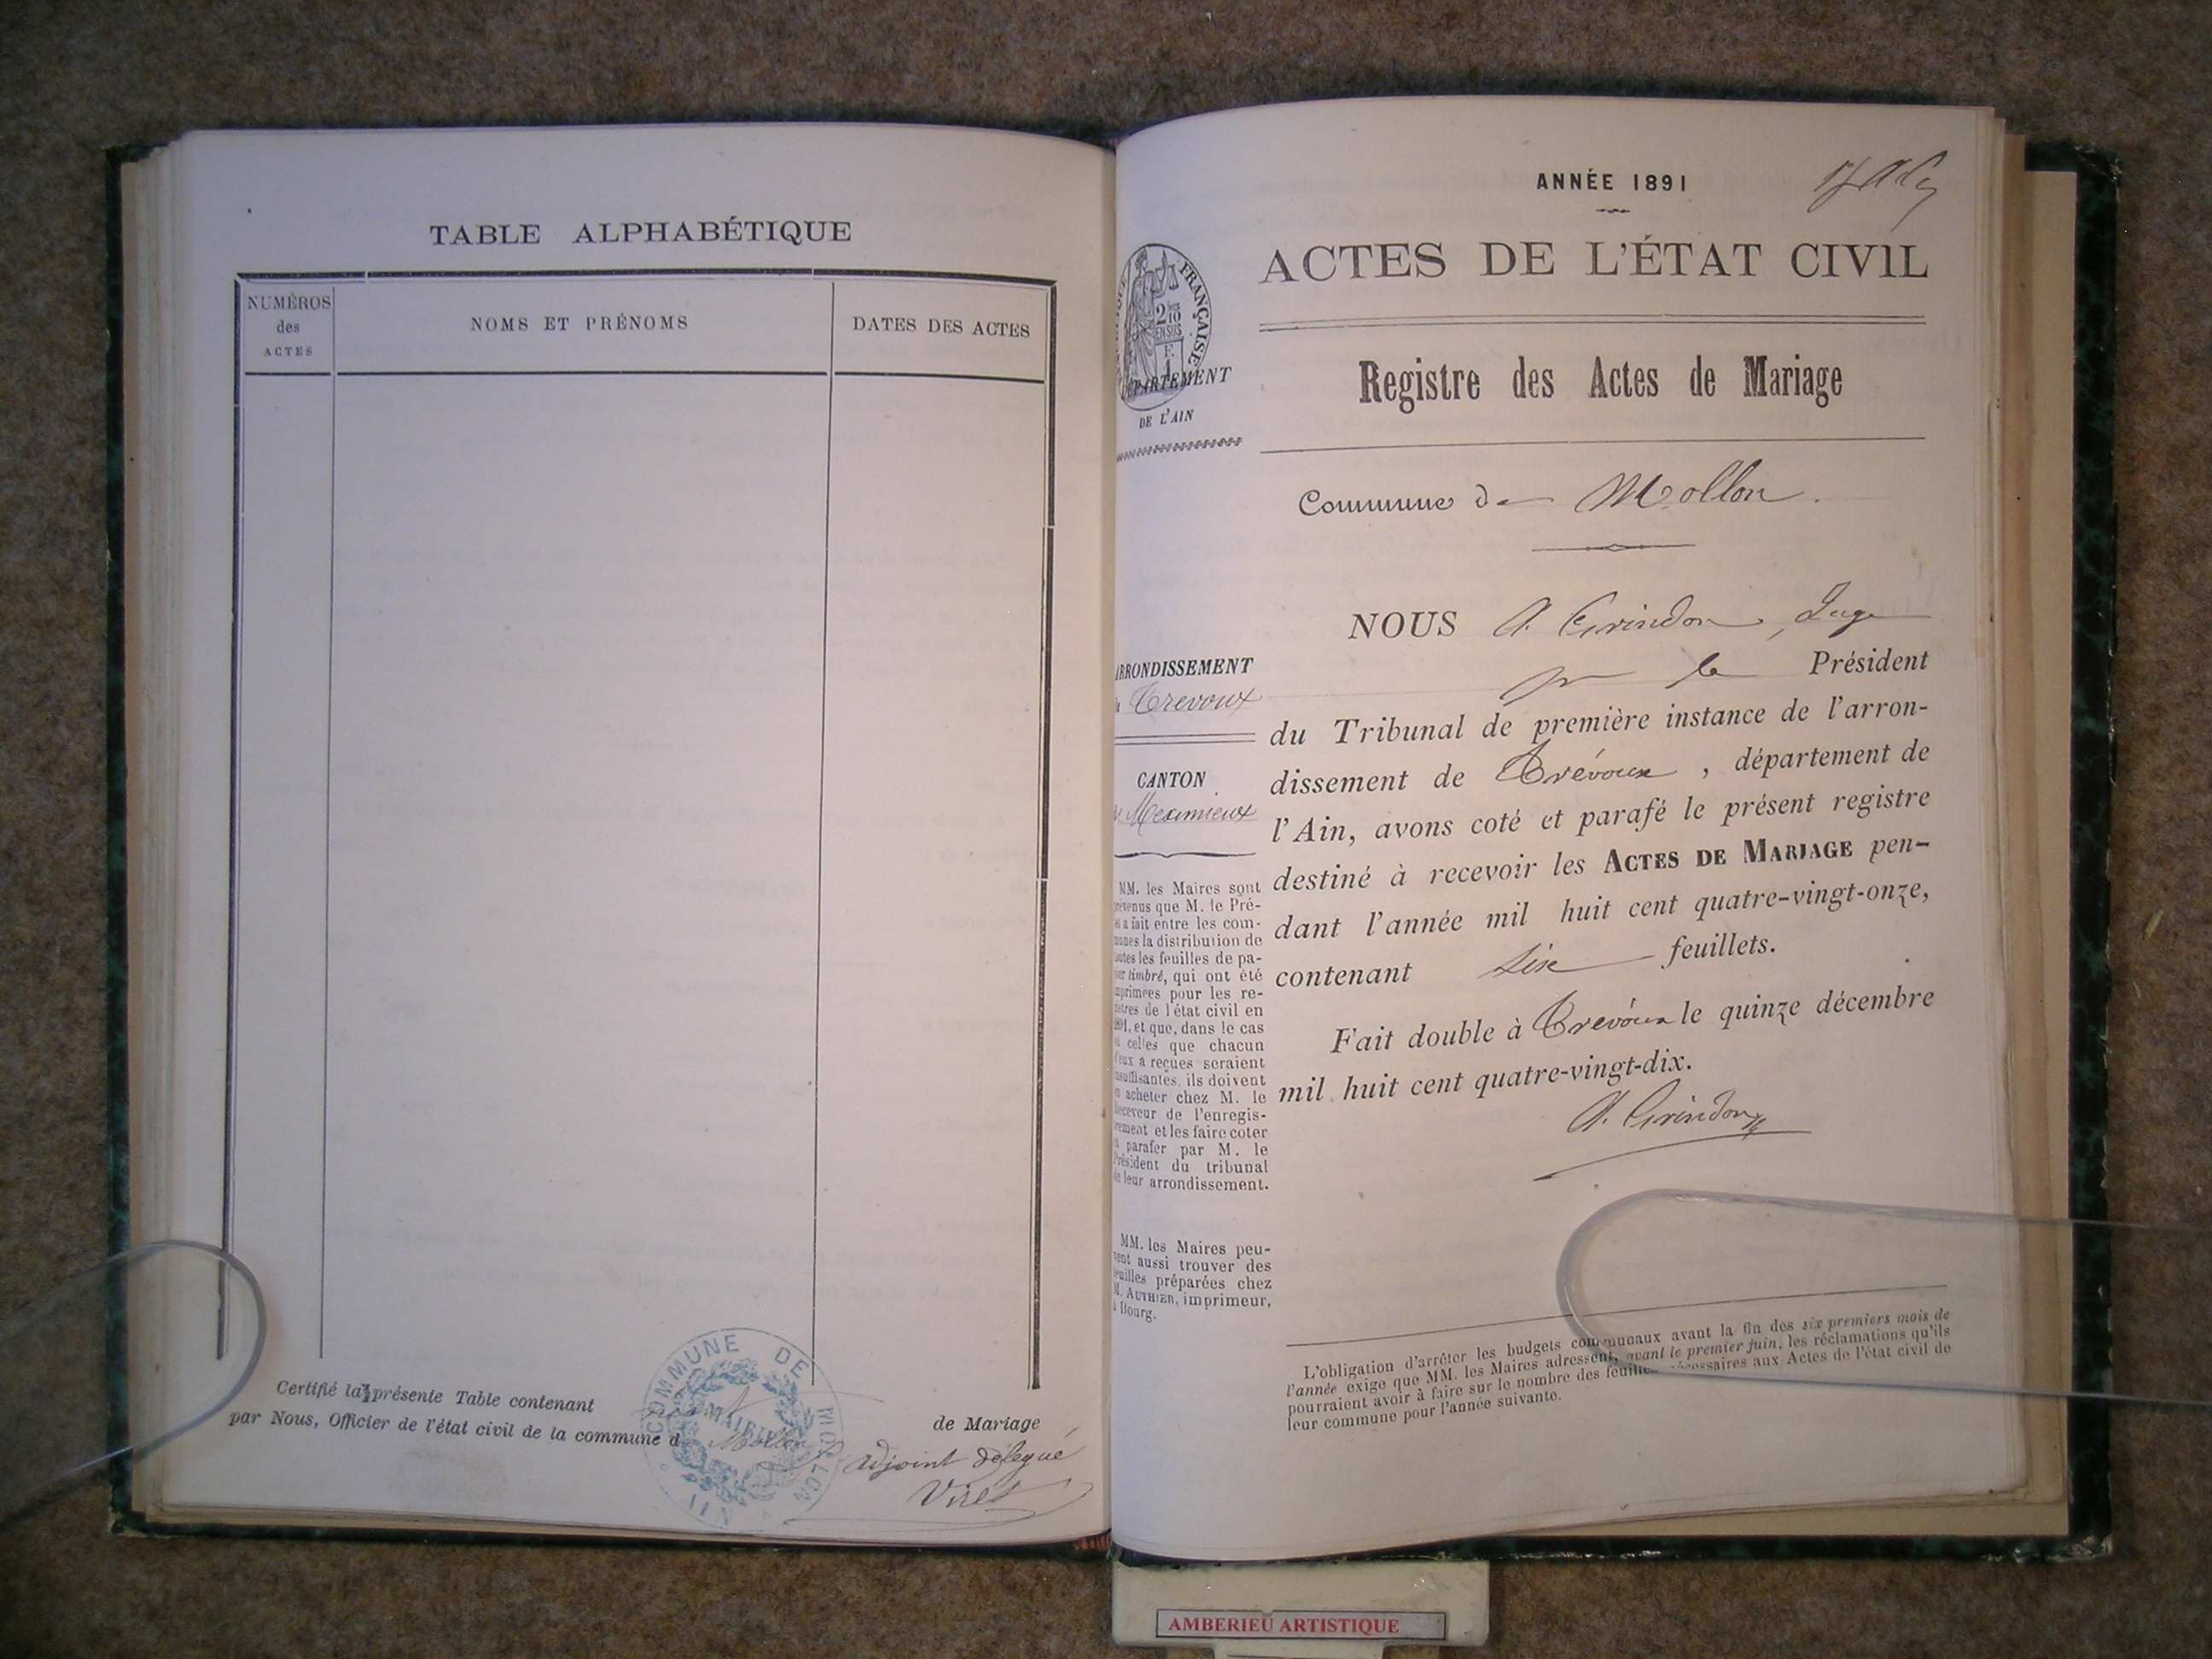 TABLE ALPHABÉTIQUE
NUMÉROS
des
ACTES
NOMS ET PRÉNOMS
DATES DES ACTES
Certifié la présente Table contenant
de Mariage
par Nous, Officier de l'état civil de la commune d Mollon
adjoint délégué
Viret
COMMUNE DE MOLLON
MAIRIE
ANNÉE 1891
ACTES DE L'ÉTAT CIVIL
FRANÇAISE
DÉPARTEMENT
DE L'AIN
Registre des Actes de Mariage
Commune de Mollon.
NOUS A. Grindon, Juge
pr le Président
du Tribunal de première instance de l'arron-
dissement de Trévoux, département de
l'Ain, avons coté et parafé le présent registre
destiné à recevoir les ACTES DE MARIAGE pen-
dant l'année mil huit cent quatre-vingt-onze,
contenant Six feuillets.
Fait double à Trévoux le quinze décembre
mil huit cent quatre-vingt-dix.
A. Grindon
ARRONDISSEMENT
Trevoux
CANTON
de Meximieux
MM. les Maires sont
prévenus que M. le Pré-
et a fait entre les com-
munes la distribution de
toutes les feuilles de pa-
pier timbré, qui ont été
imprimées pour les re-
gistres de l'état civil en
1891, et que, dans le cas
où celles que chacun
d'eux a reçues seraient
insuffisantes, ils doivent
en acheter chez M. le
Receveur de l'enregis-
trement et les faire coter
et parafer par M. le
Président du tribunal
de leur arrondissement.
MM. les Maires peu-
vent aussi trouver des
feuilles préparées chez
M. AUTHIER, imprimeur,
à Bourg.
L'obligation d'arrêter les budgets communaux avant la fin des six premiers mois de
l'année exige que MM. les Maires adressent, avant le premier juin, les réclamations qu'ils
pourraient avoir à faire sur le nombre des feuilles nécessaires aux Actes de l'état civil de
leur commune pour l'année suivante.
AMBERIEU ARTISTIQUE